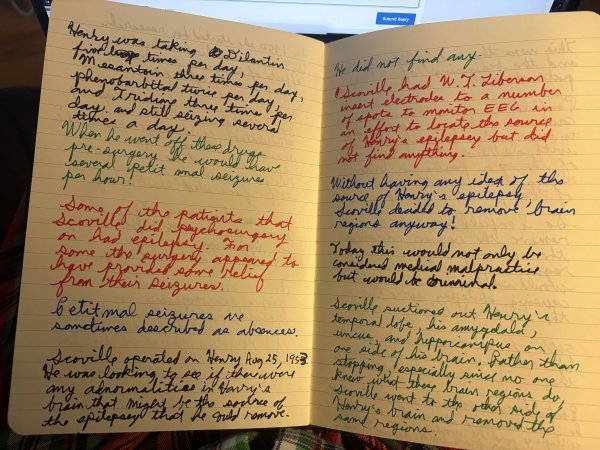 Submit Reply
Henry was taking Dilantin
five times per day,
Mesantoin three times per day,
phenobarbital twice per day,
and Tridione three times per
day and still seizing several
times a day.
When he went off these drugs
pre-surgery he would have
several petit mal seizures
per hour!
Some of the patients that
Scoville did psychosurgery
on had epilepsy. For
some the surgery appeared to
have provided some relief
from their seizures.
Petit mal seizures are
sometimes described as absences.
Scoville operated on Henry Aug 25, 1953.
He was looking to see if there were
any abnormalities in Henry's
brain that might be the source of
the epilepsy that he could remove.
He did not find any.
Scoville had W. T. Liberson
insert electrodes to a number
of spots to monitor EEG in
an effort to locate the source
of Henry's epilepsy but did
not find anything.
Without having any idea of the
source of Henry's epilepsy,
Scoville decided to remove brain
regions anyway!
Today this would not only be
considered medical malpractice
but would be criminal.
Scoville suctioned out Henry's
temporal lobe, his amygdala,
uncus, and hippocampus on
one side of his brain. Rather than
stopping, especially since no one
knew what these brain regions do,
Scoville went to the other side of
Henry's brain and removed the
same regions.